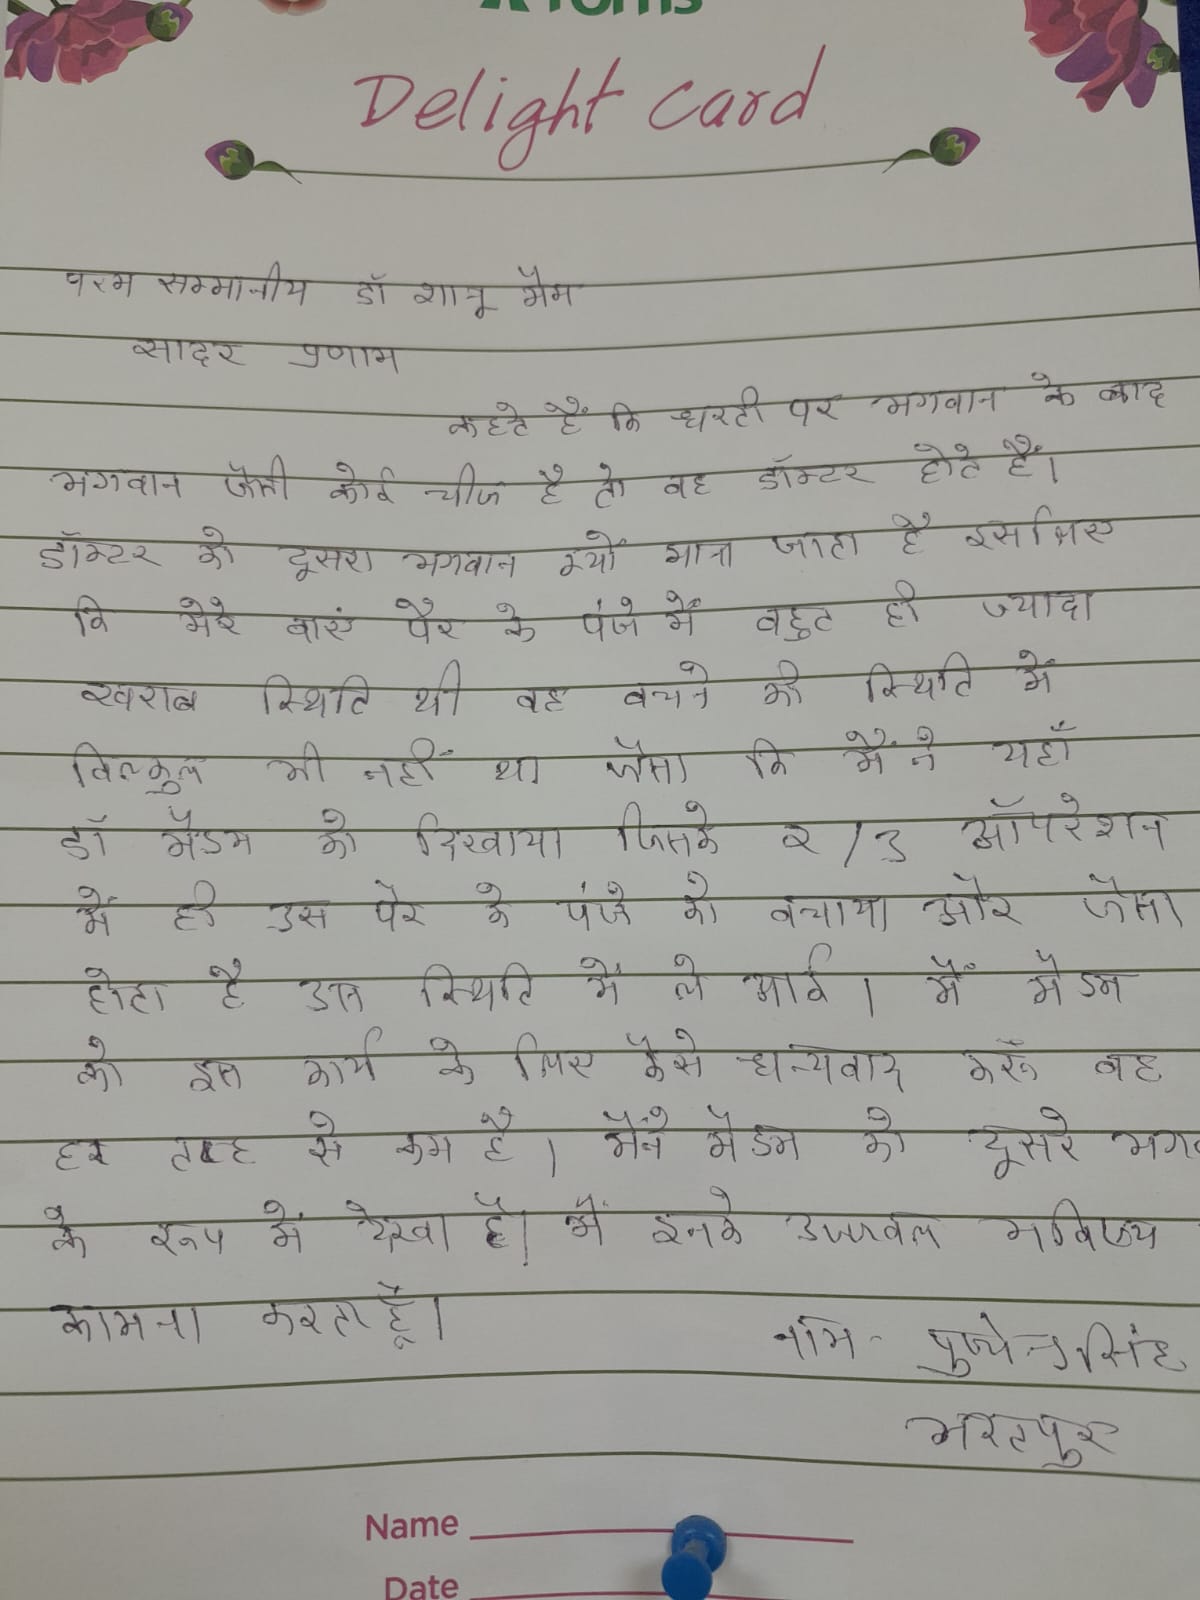 Delight Card
परम सम्मानीय डॉ शानू मैम
सादर प्रणाम
कहते हैं कि धरती पर भगवान के बाद
भगवान जैसी कोई चीज है तो वह डॉक्टर होते हैं।
डॉक्टर को दूसरा भगवान क्यों माना जाता है इसलिए
कि मेरे बाएं पैर के पंजे में बहुत ही ज्यादा
खराब स्थिति थी वह बचने की स्थिति में
बिल्कुल भी नहीं था जैसा कि मैंने यहाँ
डॉ मैडम को दिखाया जिसके २/३ ऑपरेशन
में ही उस पैर के पंजे को बचाया और जैसा
होता है उस स्थिति में ले आई। मैं मैडम
को इस कार्य के लिए कैसे धन्यवाद करूँ वह
हर तरह से कम है। मैंने मैडम को दूसरे
के रूप में देखा है। मैं इनके उज्जवल भविष्य
कामना करता हूँ।
नाम- पुष्पेन्द्र सिंह
भरतपुर
Name
Date